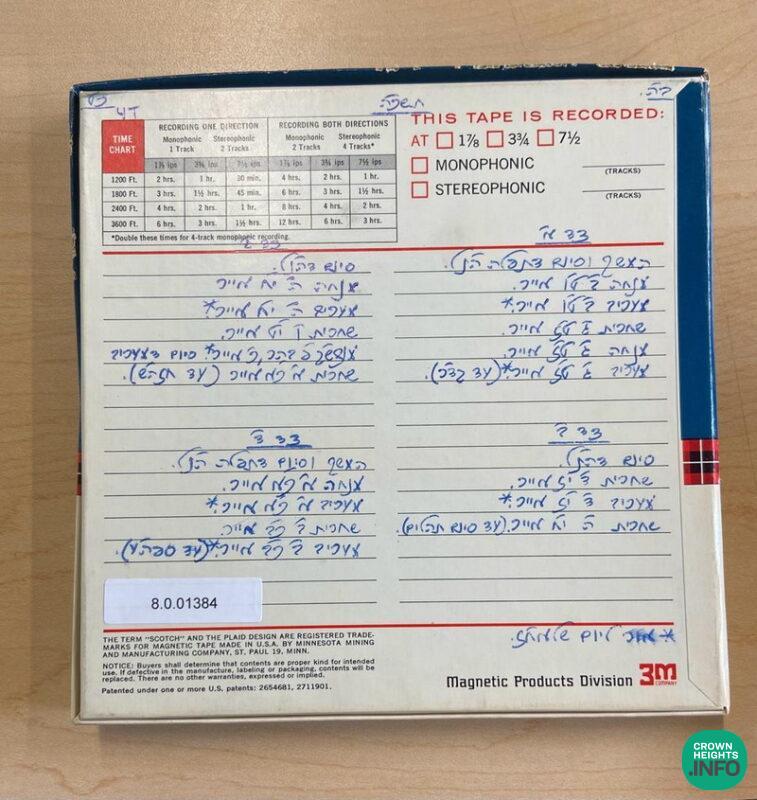 ב"ה.
תשכ"ה
TIME CHART
RECORDING ONE DIRECTION RECORDING BOTH DIRECTIONS
Monophonic 1 Track Stereophonic 2 Tracks Monophonic 2 Tracks Stereophonic 4 Tracks*
1⅞ ips 3¾ ips 7½ ips 1⅞ ips 3¾ ips 7½ ips
1200 Ft. 2 hrs. 1 hr. 30 min. 4 hrs. 2 hrs. 1 hr.
1800 Ft. 3 hrs. 1½ hrs. 45 min. 6 hrs. 3 hrs. 1½ hrs.
2400 Ft. 4 hrs. 2 hrs. 1 hr. 8 hrs. 4 hrs. 2 hrs.
3600 Ft. 6 hrs. 3 hrs. 1½ hrs. 12 hrs. 6 hrs. 3 hrs.
*Double these times for 4-track monophonic recording.
THIS TAPE IS RECORDED:
AT 1⅞ 3¾ 7½
MONOPHONIC (TRACKS)
STEREOPHONIC (TRACKS)
צד א'
המשך וסיום דתפלת הנ"ל.
מנחה ב' ט"ו אייר.
מעריב ב' ט"ו אייר.*
שחרית ג' ט"ז אייר.
מנחה ג' ט"ז אייר.
מעריב ג' ט"ז אייר.* (עד
צד ב'
סיום דהנ"ל.
שחרית ד' י"ז אייר.
מעריב ד' י"ז אייר.*
שחרית ה' י"ח אייר. (עד סיום תהלים).
צד ג'
סיום דהנ"ל.
מנחה ה' י"ח אייר.
מעריב ה' י"ח אייר*
שחרית ו' י"ט אייר.
אייר* סיום דמעריב
שחרית א' כ"א אייר (עד
צד ד'
המשך וסיום דתפלת הנ"ל.
מנחה א' כ"א אייר.
מעריב א' כ"א אייר.*
שחרית ב' כ"ב אייר.
מעריב ב' כ"ב אייר.* (עד ספה"ע).
8.0.01384
THE TERM "SCOTCH" AND THE PLAID DESIGN ARE REGISTERED TRADE-
MARKS FOR MAGNETIC TAPE MADE IN U.S.A. BY MINNESOTA MINING
AND MANUFACTURING COMPANY, ST. PAUL 19, MINN.
NOTICE: Buyers shall determine that contents are proper kind for intended
use. If defective in the manufacture, labeling or packaging, contents will be
replaced. There are no other warranties, expressed or implied.
Patented under one or more U.S. patents: 2654681, 2711901.
Magnetic Products Division 3M COMPANY
CROWN HEIGHTS .INFO